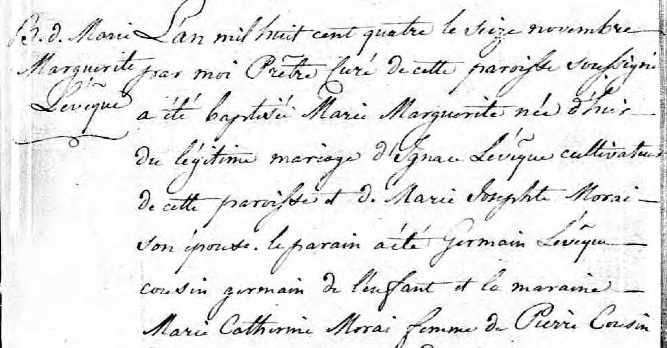 B. d. Marie
Marguerite
Lévêque
L'an mil huit cent quatre le seize novembre
par moi Prêtre Curé de cette paroisse soussigné
a été baptisée Marie Marguerite née d'hier
du légitime mariage d'Ignace Lévêque cultivateur
de cette paroisse et d. Marie Josephte Morai
son épouse. le parain a été Germain Lévêque
cousin germain de l'enfant et la maraine
Marie Catherine Morai femme de Pierre Cousin